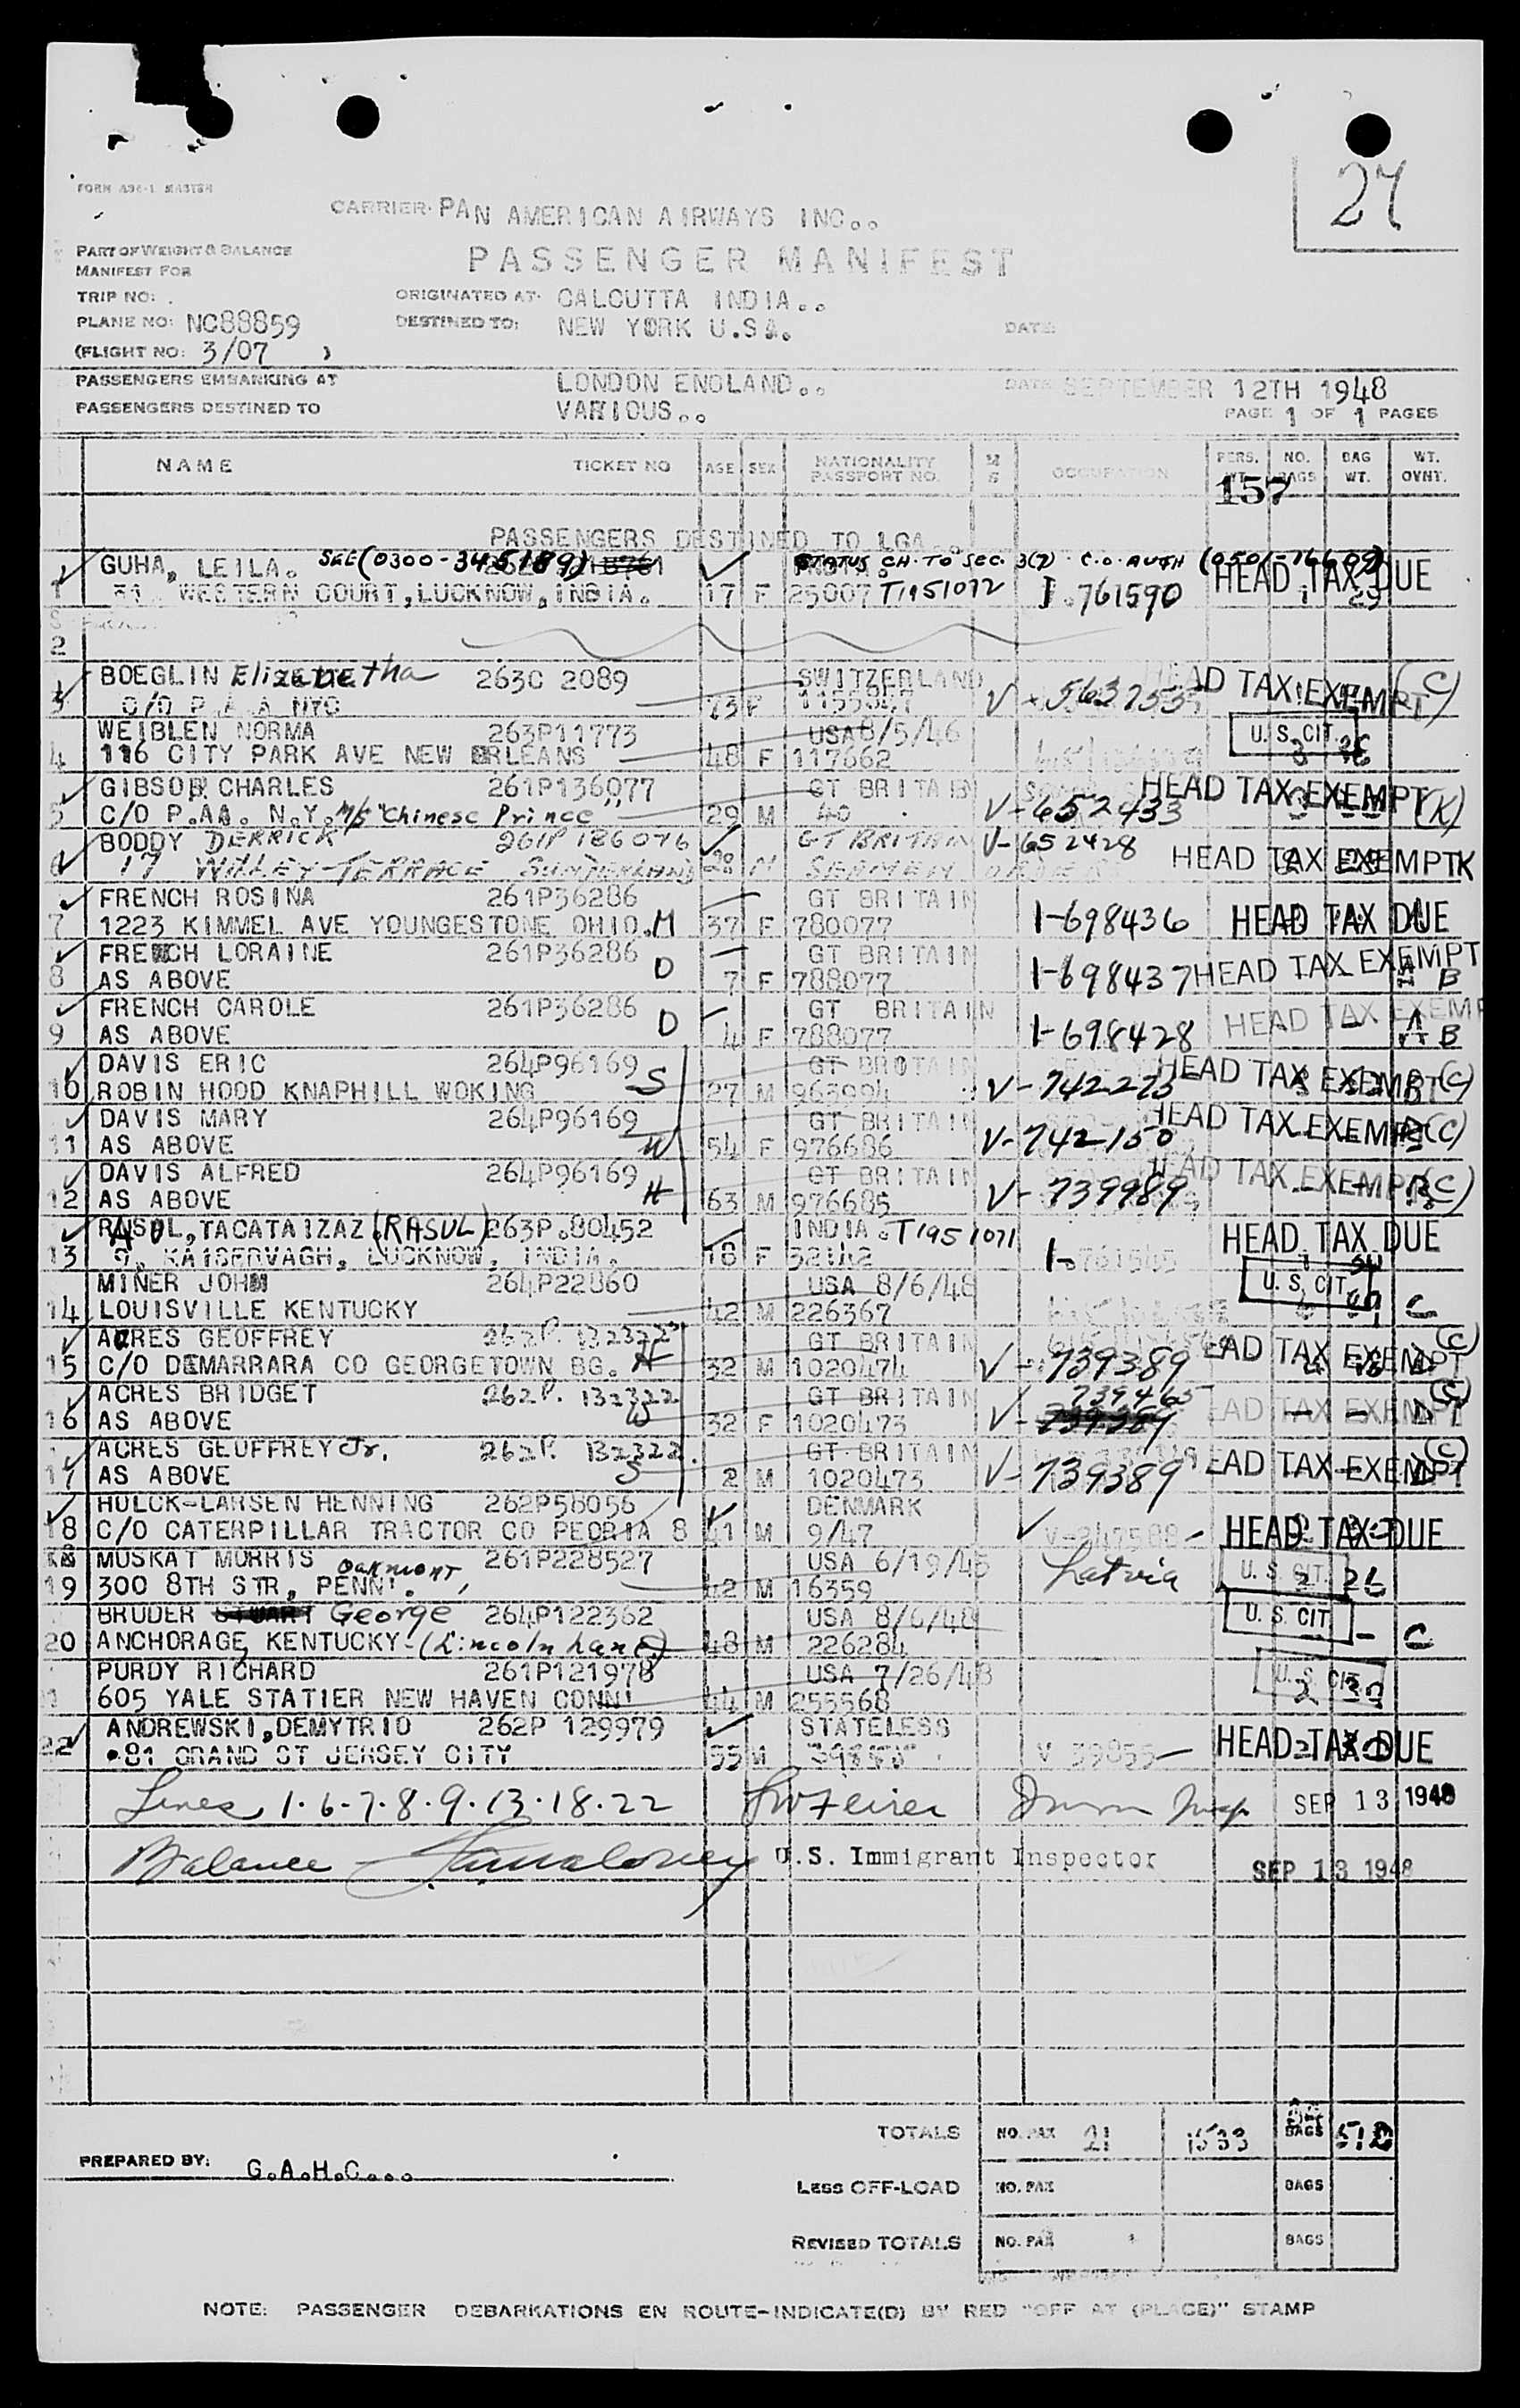 27
FORM
CARRIER. PAN AMERICAN AIRWAYS INC..
PART OF WEIGHT & BALANCE
MANIFEST FOR
PASSENGER MANIFEST
TRIP NO:
ORIGINATED AT. CALCUTTA INDIA..
PLANE NO: NC88859
DESTINED TO: NEW YORK U.S.A.
DATE:
(FLIGHT NO: 3/07 )
PASSENGERS EMBARKING AT LONDON ENGLAND.. DATE SEPTEMBER 12TH 1948
PASSENGERS DESTINED TO VARIOUS.. PAGE 1 OF 1 PAGES
NAME TICKET NO AGE SEX NATIONALITY PASSPORT NO. M S OCCUPATION PERS. WT. NO. BAGS BAG WT. WT. OVNT.
157
PASSENGERS DESTINED TO LGA
GUHA, LEILA. SEE (0300-345189) STATUS CH. TO SEC. 3(7) C.O. AUTH
1 WESTERN COURT, LUCKNOW, INDIA. 17 F 25007 T1951072 I.761590 HEAD TAX DUE
2
BOEGLIN Elizabetha 263C 2089 SWITZERLAND HEAD TAX EXEMPT (C)
3 C/O P.A.A NYC F
WEIBLEN NORMA 263P11773 USA 8/5/46 U.S. CIT.
4 116 CITY PARK AVE NEW ORLEANS 48 F 117662
GIBSON CHARLES 261P136077 GT BRITAIN HEAD TAX EXEMPT (K)
5 C/O P.AA. N.Y. M/S "Chinese Prince" 29 M 40 V-652433
BODDY DERRICK 261P 136076 GT BRITAIN V-652428 HEAD TAX EXEMPT K
6 17 TERRACE SUNDERLAND 20 M SEAMEN
FRENCH ROSINA 261P36286 GT BRITAIN
7 1223 KIMMEL AVE YOUNGESTONE OHIO. M 37 F 780077 1-698436 HEAD TAX DUE
FRENCH LORAINE 261P36286 GT BRITAIN
8 AS ABOVE D 7 F 788077 1-698437 HEAD TAX EXEMPT B
FRENCH CAROLE 261P36286 GT BRITAIN
9 AS ABOVE D 4 F 788077 1-698428 HEAD TAX EXEMPT B
DAVIS ERIC 264P96169 GT BRITAIN
10 ROBIN HOOD KNAPHILL WOKING S 27 M 963994 V-742275 HEAD TAX EXEMPT (C)
DAVIS MARY 264P96169 GT BRITAIN
11 AS ABOVE W 54 F 976686 V-742150 HEAD TAX EXEMPT (C)
DAVIS ALFRED 264P96169 GT BRITAIN
12 AS ABOVE H 63 M 976685 V-739989 HEAD TAX EXEMPT (C)
RASUL, TACATAIZAZ (RASUL) 263P.80452 INDIA. T1951071
13 9, KAISERVAGH, LUCKNOW, INDIA. 18 F 32142 HEAD TAX DUE
MINER JOHN 264P22860 USA 8/6/48 U.S. CIT.
14 LOUISVILLE KENTUCKY 42 M 226367 C
ACRES GEOFFREY 262P. 132322 GT BRITAIN
15 C/O DEMARRARA CO GEORGETOWN BG. H 32 M 1020474 V-739389 HEAD TAX EXEMPT (C)
ACRES BRIDGET 262P. 132322 GT BRITAIN 739465
16 AS ABOVE W 32 F 1020473 V-739389 HEAD TAX EXEMPT (C)
ACRES GEOFFREY Jr. 262P. 132322. GT BRITAIN
17 AS ABOVE S 2 M 1020473 V-739389 HEAD TAX EXEMPT (C)
HOLCK-LARSEN HENNING 262P58056 DENMARK
18 C/O CATERPILLAR TRACTOR CO PEORIA 8 41 M 9/47 V-247588 HEAD TAX DUE
MUSKAT MORRIS Oakmont, 261P228527 USA 6/19/45 U.S. CIT.
19 300 8TH STR, PENN. 42 M 16359 Latvia 26
BRUDER STUART George 264P122362 USA 8/6/48 U.S. CIT
20 ANCHORAGE KENTUCKY - (Lincoln Lane) 48 M 226284 C
PURDY RICHARD 261P121978 USA 7/26/48 U.S. CIT.
605 YALE STATIER NEW HAVEN CONN. 44 M 255568
ANDREWSKI, DEMYTRIO 262P 129979 STATELESS
22 81 GRAND ST JERSEY CITY 55 M V 39855 HEAD TAX DUE
Lines 1·6·7·8·9·13·18·22 SEP 13 1948
Balance U.S. Immigrant Inspector SEP 13 1948
TOTALS NO. PAX 21 1533 BAGS 510
PREPARED BY: G.A.H.C...
LESS OFF-LOAD NO. PAX BAGS
REVISED TOTALS NO. PAX BAGS
NOTE: PASSENGER DEBARKATIONS EN ROUTE-INDICATE(D) BY RED "OFF AT (PLACE)" STAMP